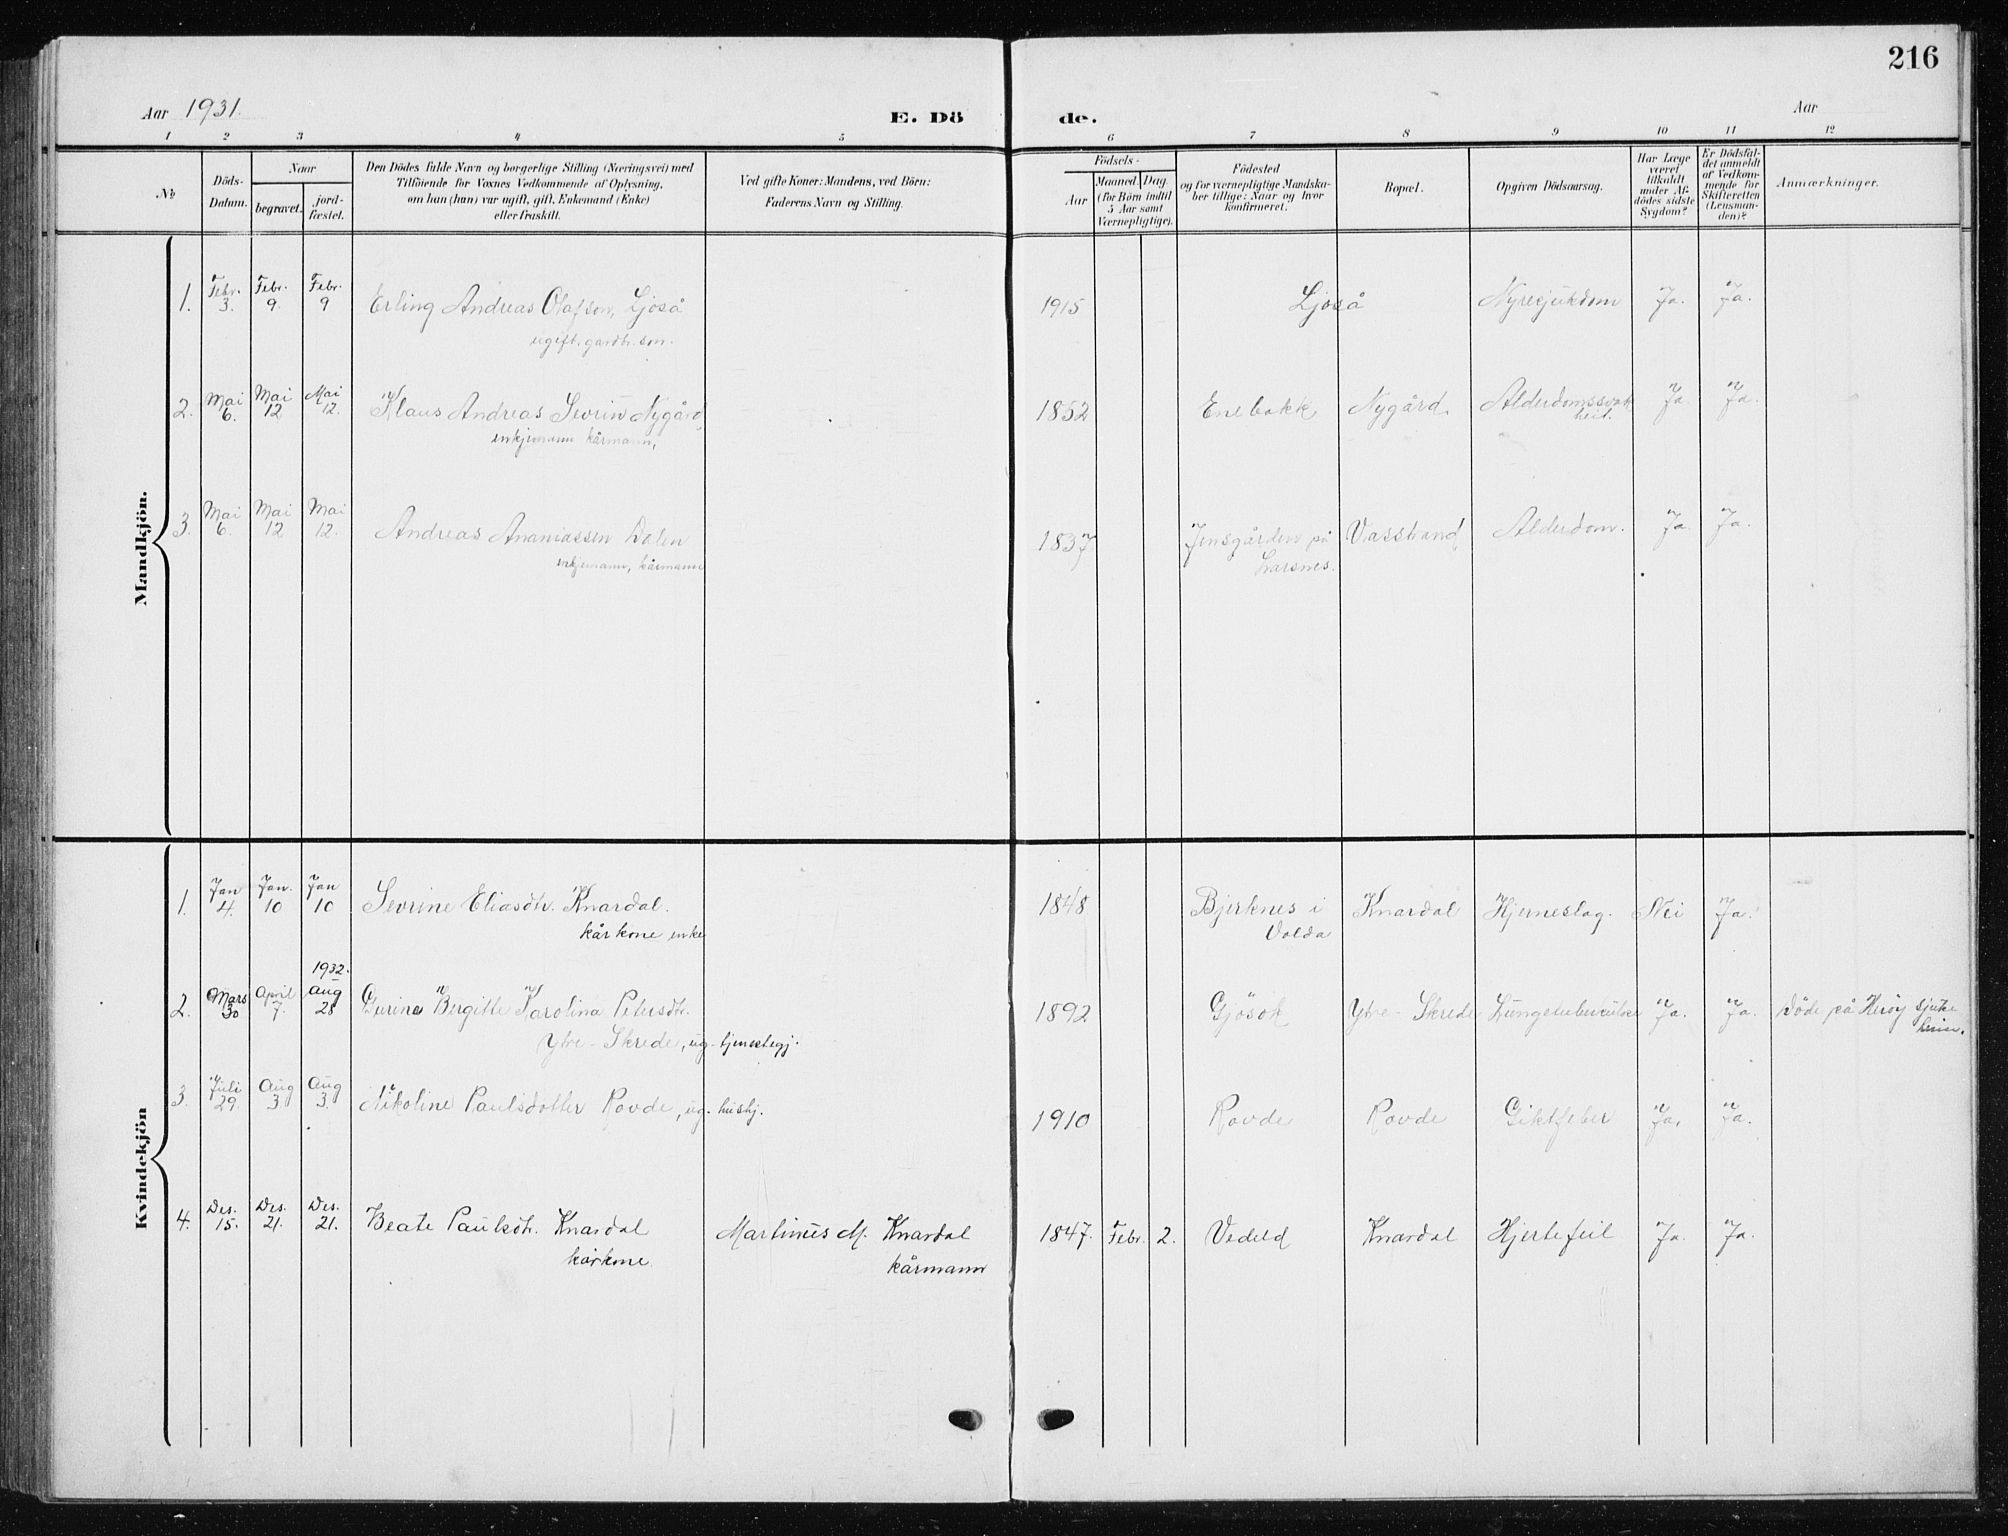 216
Aar 1931.
E. Dö de.
Aar
1 2 3 4 5 6 7 8 9 10 11 12
№
Döds-
Datum.
Naar
begravet.
jord-
fæstet.
Den Dödes fulde Navn og borgerlige Stilling (Næringsvei) med
Tilföiende for Voxnes Vedkommende af Oplysning,
om han (hun) var ugift, gift, Enkemand (Enke)
eller fraskilt.
Ved gifte Koner: Mandens, ved Börn:
Faderens Navn og Stilling.
Födsels-
Aar
Maaned. Dag.
(for Börn indtil
5 Aar samt
Værnepligtige).
Födested
og for værnepligtige Mandska-
ber tillige: Naar og hvor
konfirmeret.
Bopæl.
Opgiven Dödsaarsag.
Har Læge
været
tilkaldt
under Af-
dödes sidste
Sygdom?
Er Dödsfal-
det anmeldt
af Vedkom-
mende for
Skifteretten
(Lensman-
den)?
Anmærkninger.
Mandkjön.
1. Febr. 3. Febr. 9. Febr. 9 Erling Andreas Olafson, Ljöså 1915 Ljöså Nyresjukdom Ja. Ja.
ugift. gardbr. son.
2. Mai 6. Mai 12 Mai 12. Klaus Andreas Sevrin Nygård, 1852 Enebakk Nygård. Alderdomssvak Ja Ja.
heit.
enkjemann kårmann,
3. Mai 6. Mai 12 Mai 12. Andreas Ananiassen Dalen 1837 Jensgården på Vasstrand Alderdom. Ja. Ja.
enkjemann, kårmann Larsnes.
Kvindekjön
1. Jan 4. Jan. 10 Jan 10 Sevrine Eliasdtr. Knardal. 1848 Bjerknes i Knardal Hjerneslag. Nei Ja.
kårkone enke Volda
1932.
2. Mars 30 April 7. Aug 28 Gurina Bergitte Karolina Petersdtr. 1892 Gjösok Ytre-Skrede Lungetuberkulose Ja. Ja. Döde på Heröy sjuke
heim.
Ytre-Skrede, ug. tjenestegj.
3. Juli 29. Aug 3. Aug 3. Nikoline Paulsdotter Rovde, ug. hushj. 1910 Rovde Rovde Giktfeber Ja, Ja.
4. Des. 15. Des. 21. Des. 21. Beate Paulsdtr. Knardal Martinus M. Knardal 1847. Febr. 2. Vedeld Knardal Hjertefeil Ja. Ja.
kårkone. kårmann